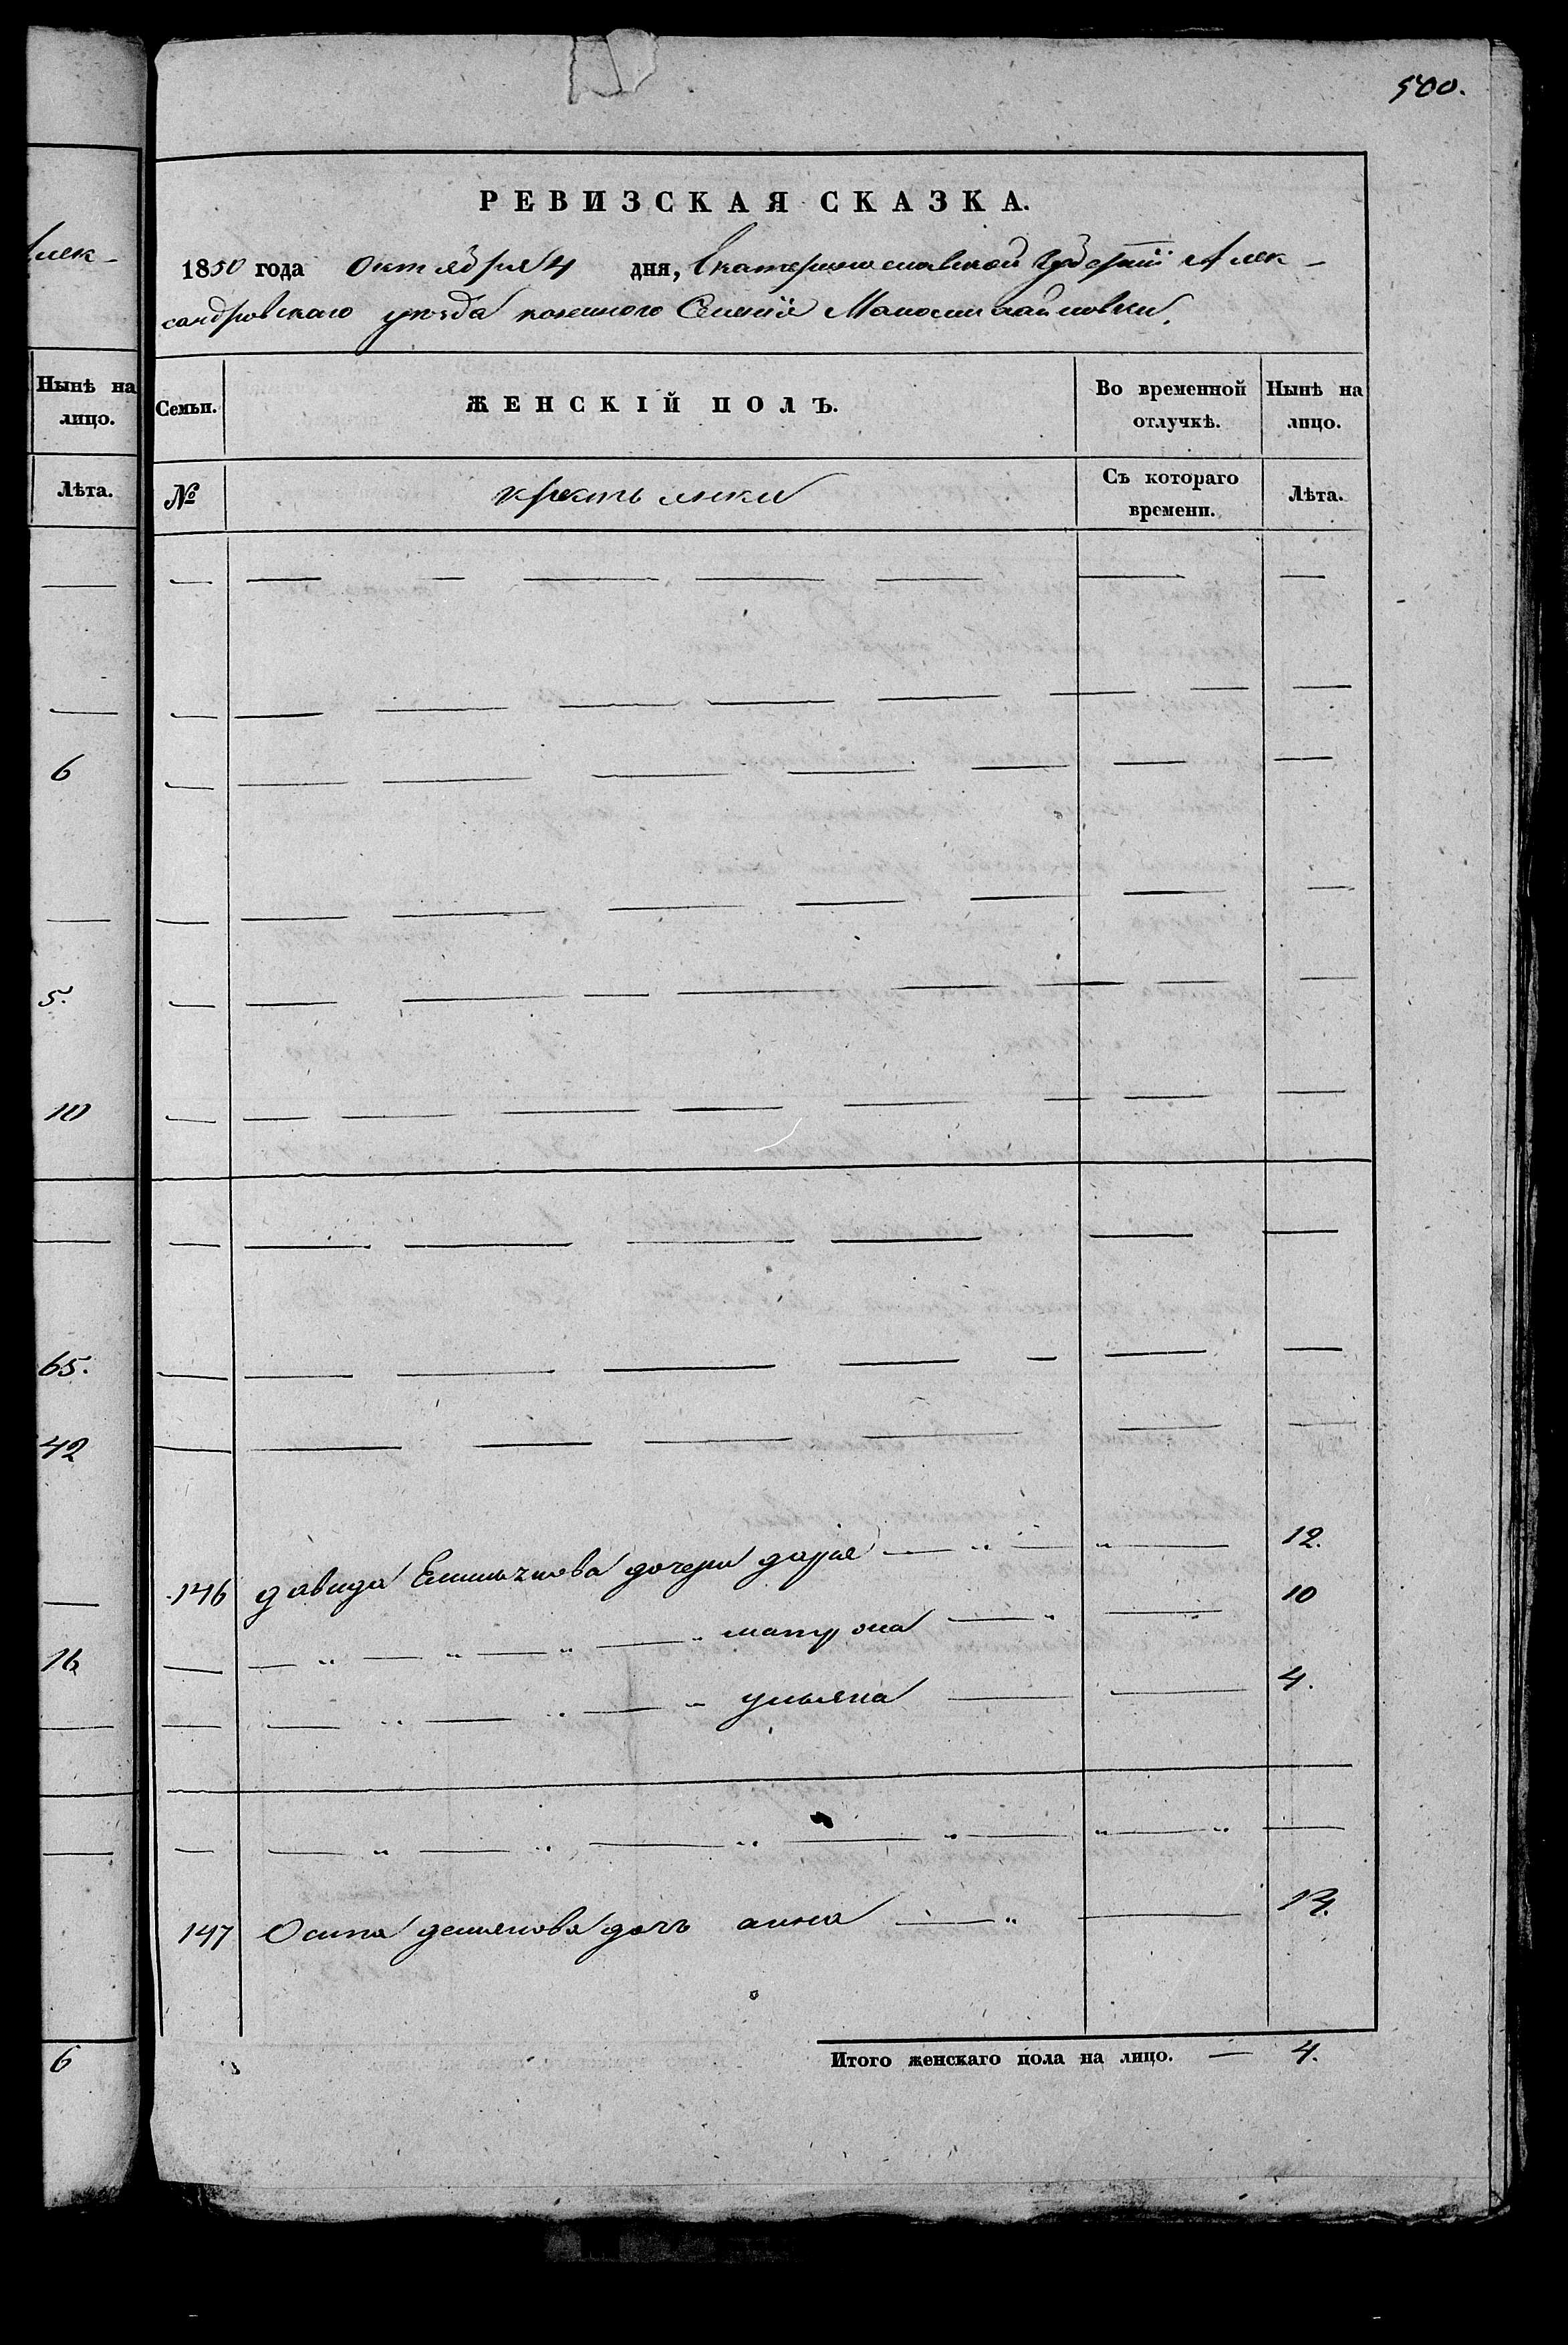 500.
РЕВИЗСКАЯ СКАЗКА.
1850 года Октября 4 дня, Екатеринославской Губернiи Алек-
сандровского уезда казенного Селенiя Маломихайловки.
Семьи. ЖЕНСКIЙ ПОЛЪ. Во временной отлучкѣ. Нынѣ на лицо.
№ крестьянки Съ котораго времени. Лѣта.
146 давида дочери дарiя 12.
матрона 10
ульяна 4.
147 Осипа демьянова дочь анна 14.
Итого женскаго пола на лицо. — 4.
Алек-
Нынѣ на
лицо.
Лѣта.
6
5.
10
65.
42
16
6